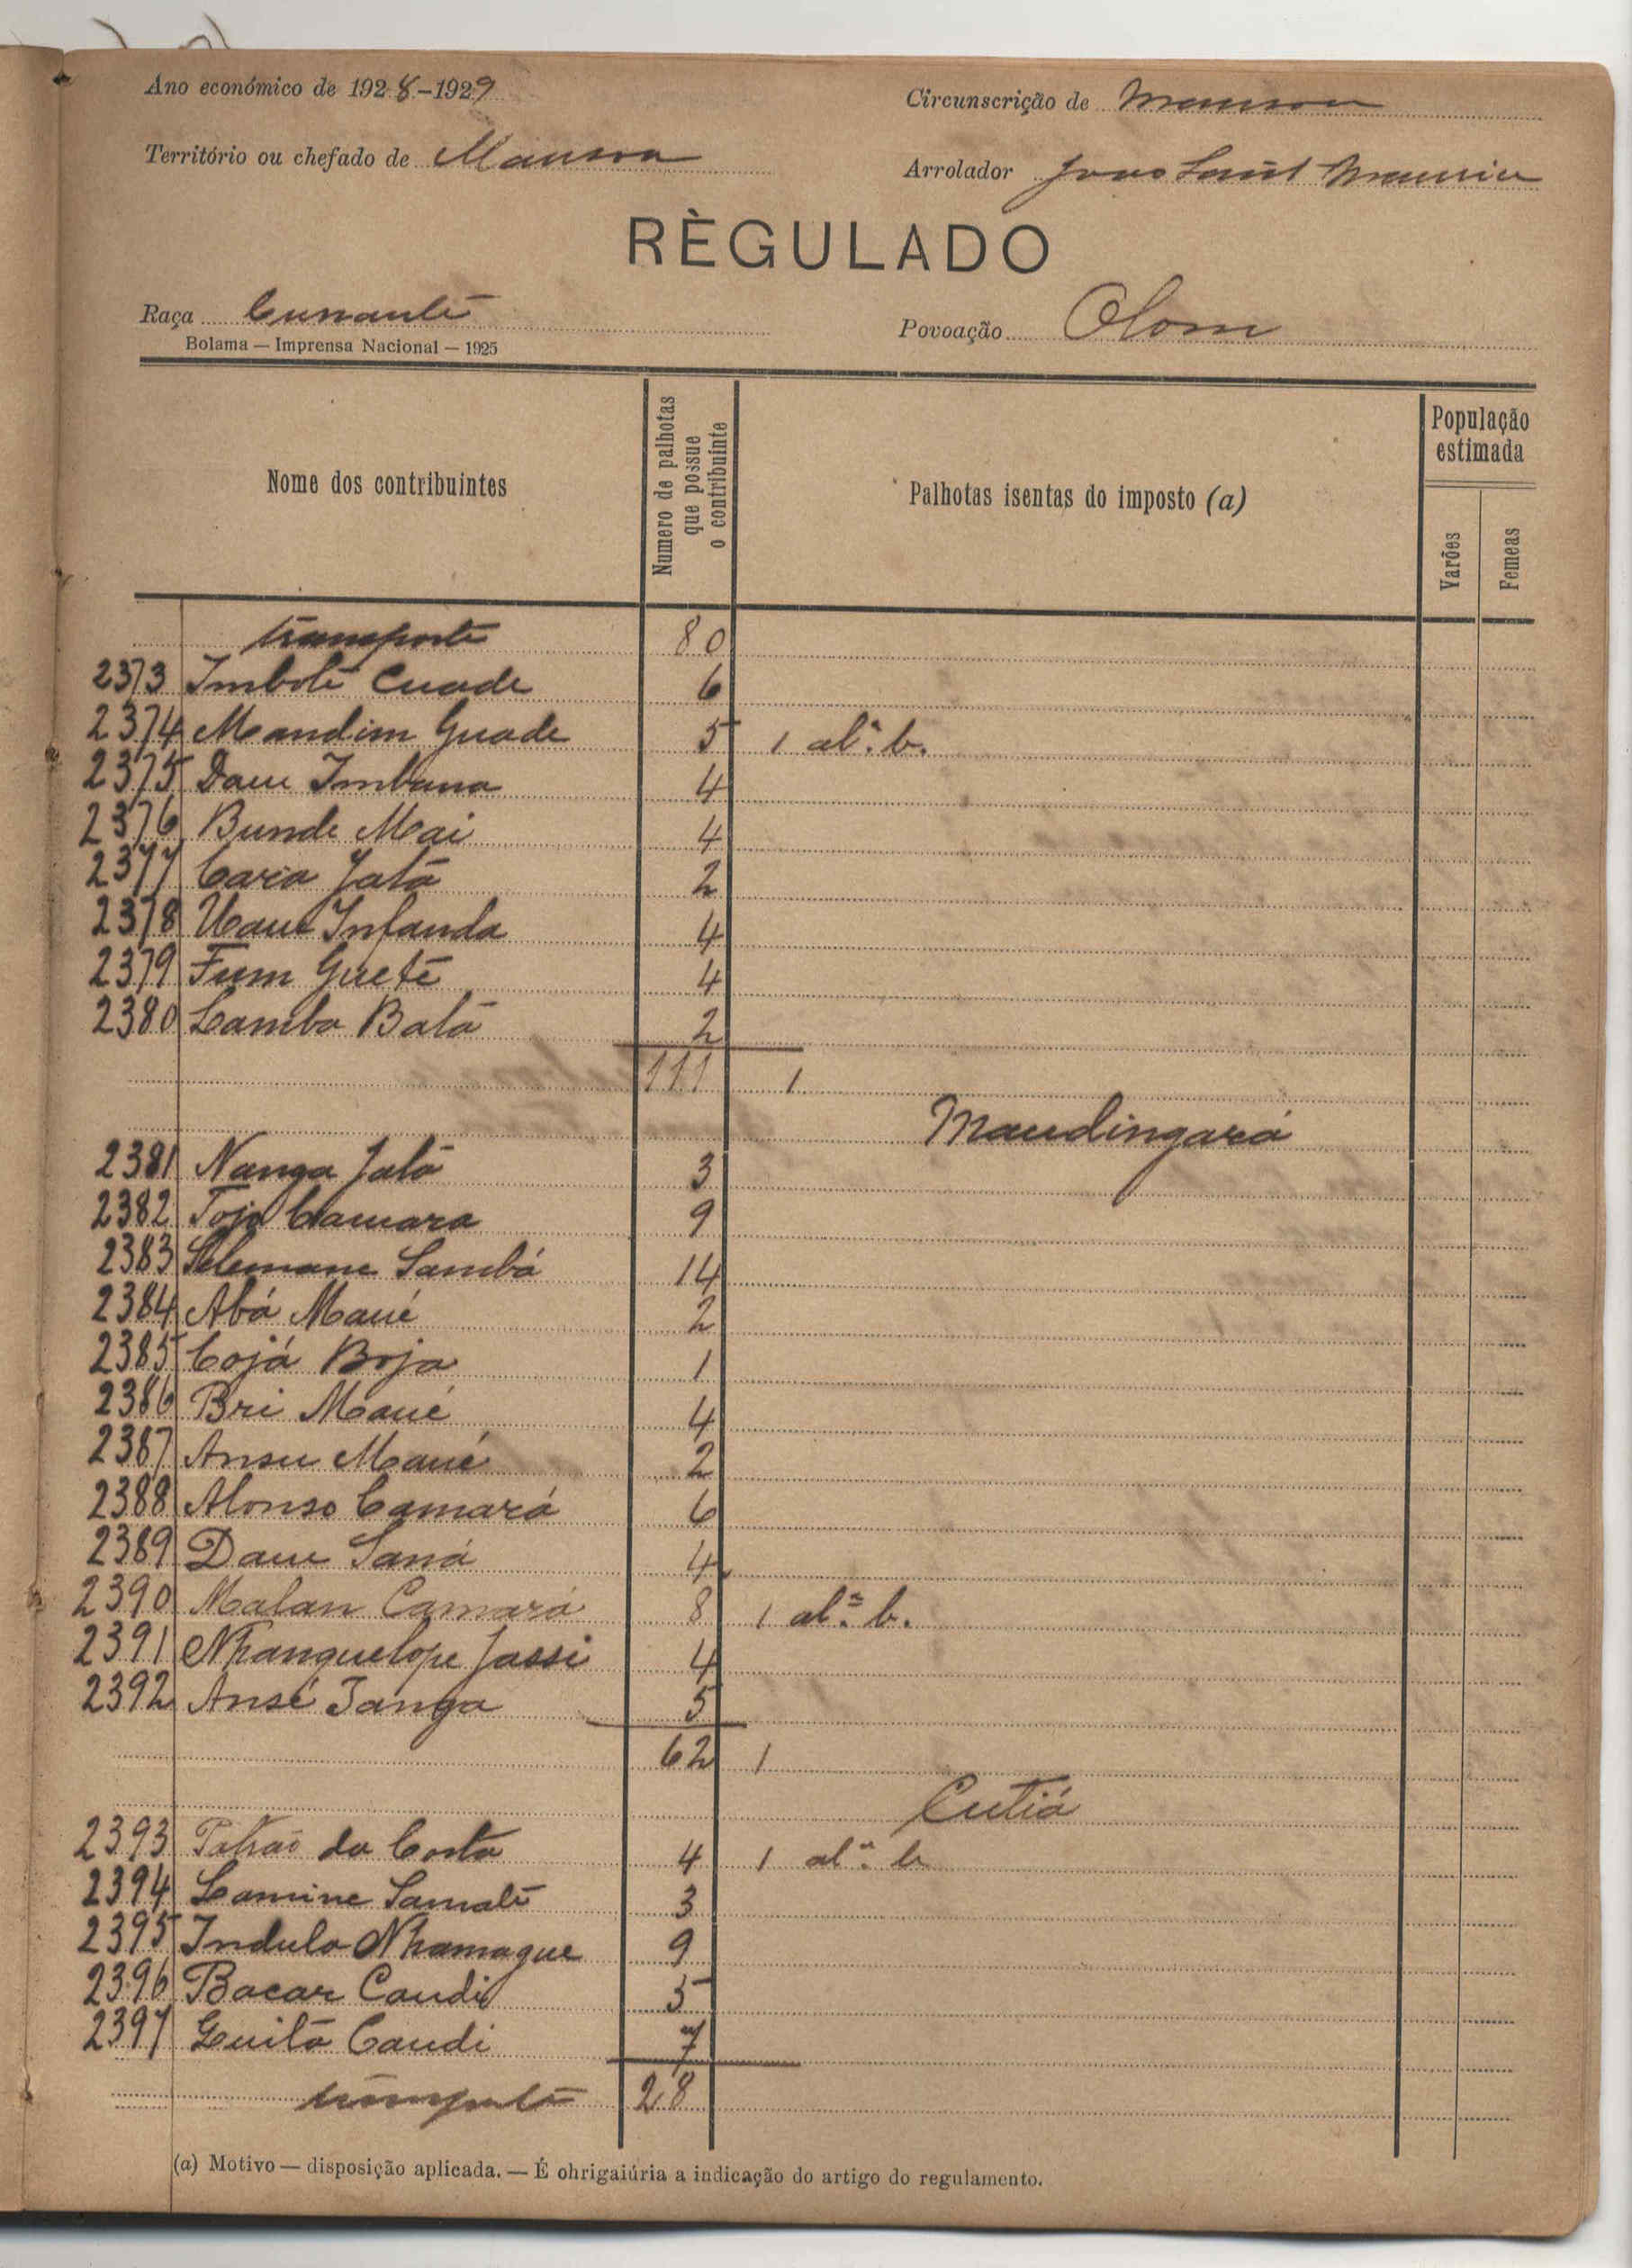 Ano económico de 1928-1929
Circunscrição de Mansoa
Território ou chefado de Mansoa
Arrolador
RÈGULADO
Raça Cunante
Povoação Olom
Bolama — Imprensa Nacional — 1925
Nome dos contribuintes
Numero de palhotas que possue o contribuinte
Palhotas isentas do imposto (a)
População estimada
Varões
Femeas
transporte 80
2373 Imbolé Cuade 6
2374 Mandim Guade 5 1 al.ª b.
2375 Dau Imbana 4
2376 Bunde Mai 4
2377 Caria Jatá 2
2378 Uaut Infanda 4
2379 Fum Gueté 4
2380 Lamba Balá 2
111 1
Mandingará
2381 Nanga Jaló 3
2382 Tojo Camara 9
2383 Selemane Sambá 14
2384 Abá Mané 2
2385 Cojá Boja 1
2386 Bri Mané 4
2387 Ansu Mané 2
2388 Alonso Camará 6
2389 Dau Saná 4
2390 Malan Camará 8 1 al.ª b.
2391 Nhanquelope Jassi 4
2392 Ansé Janga 5
62 1
Cutiá
2393 Patrão da Costa 4 1 al.ª b
2394 Lamine Samaté 3
2395 Indulo Nhamague 9
2396 Bacar Candi 5
2397 Guitá Candi 7
transporte 28
(a) Motivo — disposição aplicada. — É ohrigaiúria a indicação do artigo do regulamento.